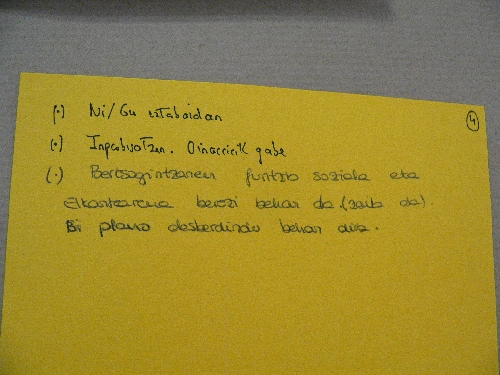 4
(·) Ni/Gu eztabaidan
(·) Inprobisatzen. Oinarririk gabe
(·) Bertsogintzaren funtzio soziala eta
Elkartearena bereizi behar da (zaila da).
Bi plano desberdindu behar dira.